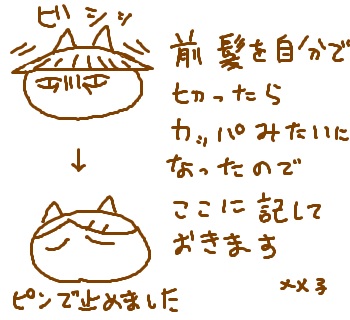 ビシッ
前髪を自分で
切ったら
カッパみたいに
なったので
ここに記して
おきます
ピンで止めました
メメ子